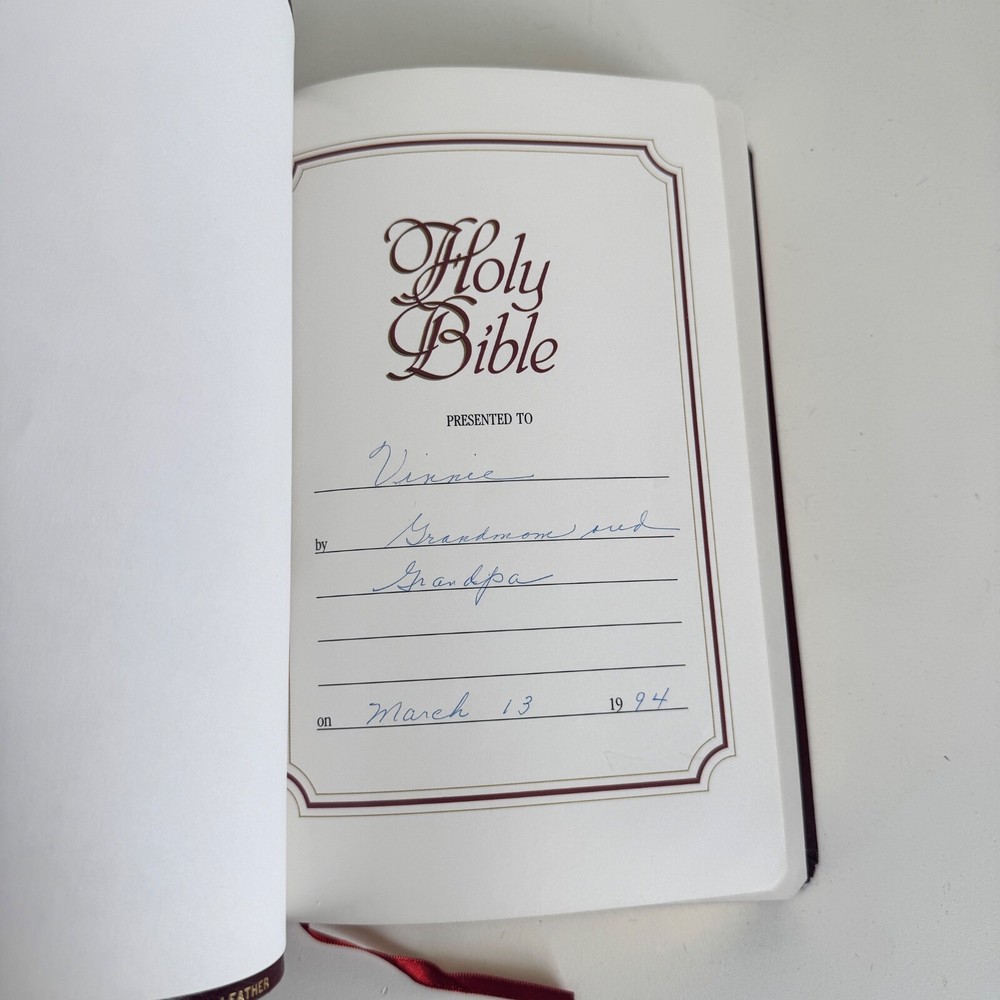 Holy
Bible
PRESENTED TO
Vinnie
by Grandmom and
Grandpa
on March 13 19 94
LEATHER